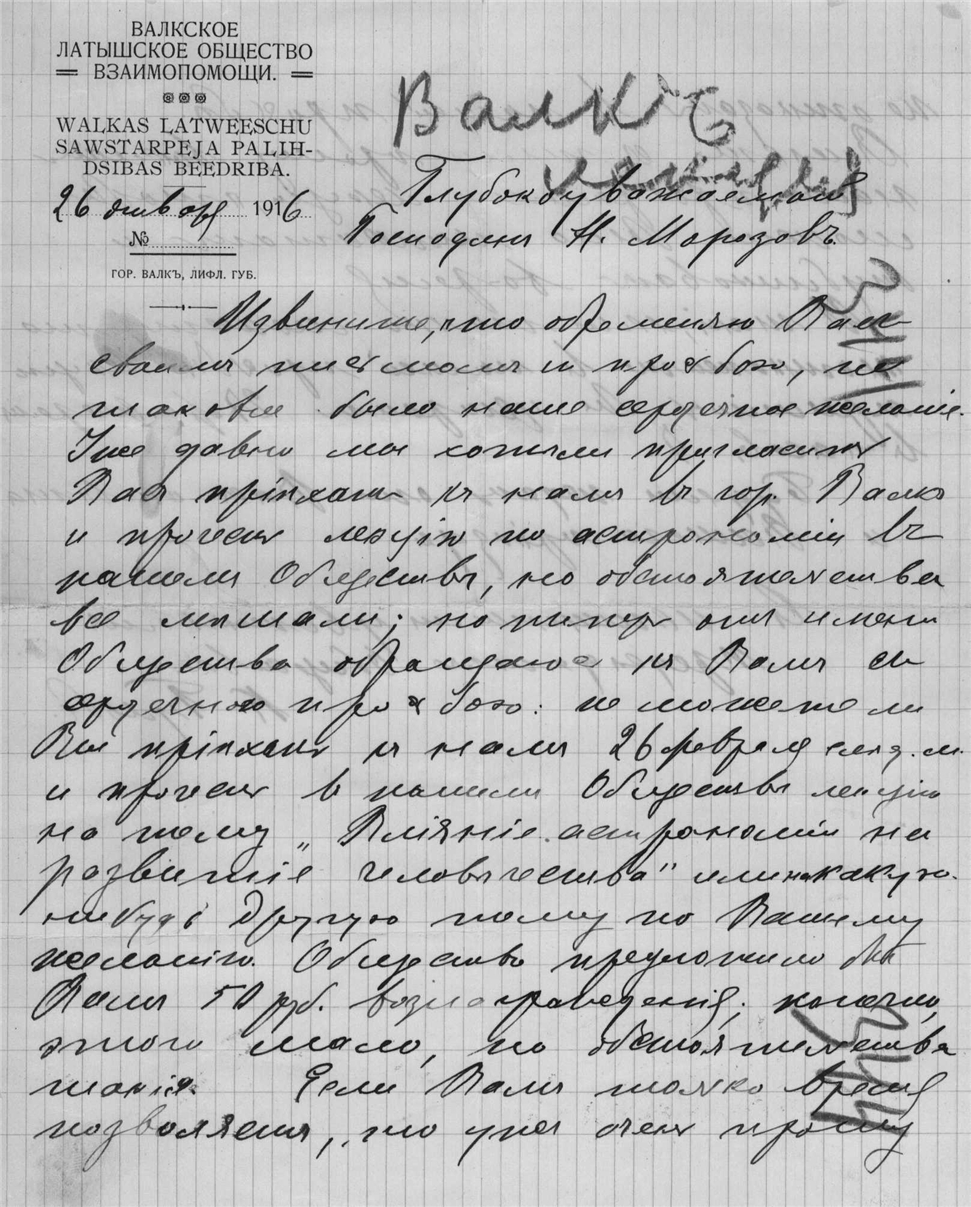 ВАЛКСКОЕ
ЛАТЫШСКОЕ ОБЩЕСТВО
ВЗАИМОПОМОЩИ.
WALKAS LATWEESCHU
SAWSTARPEJA PALIH-
DSIBAS BEEDRIBA.
26 января 1916
№
ГОР. ВАЛКЪ, ЛИФЛ. ГУБ.
Валкъ
Глубокоуважаемый
Господинъ Н. Морозовъ.
Извините, что обременяю Васъ
своимъ письмомъ и просьбою, но
таковое было наше сердечное желаніе.
Уже давно мы хотѣли пригласить
Васъ пріѣхать къ намъ въ гор. Валкъ
и прочесть лекцію по астрономіи въ
нашемъ Обществѣ, но обстоятельства
все мѣшали; но теперь отъ имени
Общества обращаюсь къ Вамъ съ
сердечною просьбою: не можете ли
Вы пріѣхать къ намъ 26 февраля слѣд. м.
и прочесть въ нашемъ Обществѣ лекцію
на тему „Вліяніе астрономіи на
развитіе человѣчества" или какую-
нибудь другую тему по Вашему
желанію. Общество предложило бы
Вамъ 50 руб. вознагражденія; конечно,
этого мало, но обстоятельства
такія. Если Вамъ только время
позволяетъ, то ужъ очень прошу